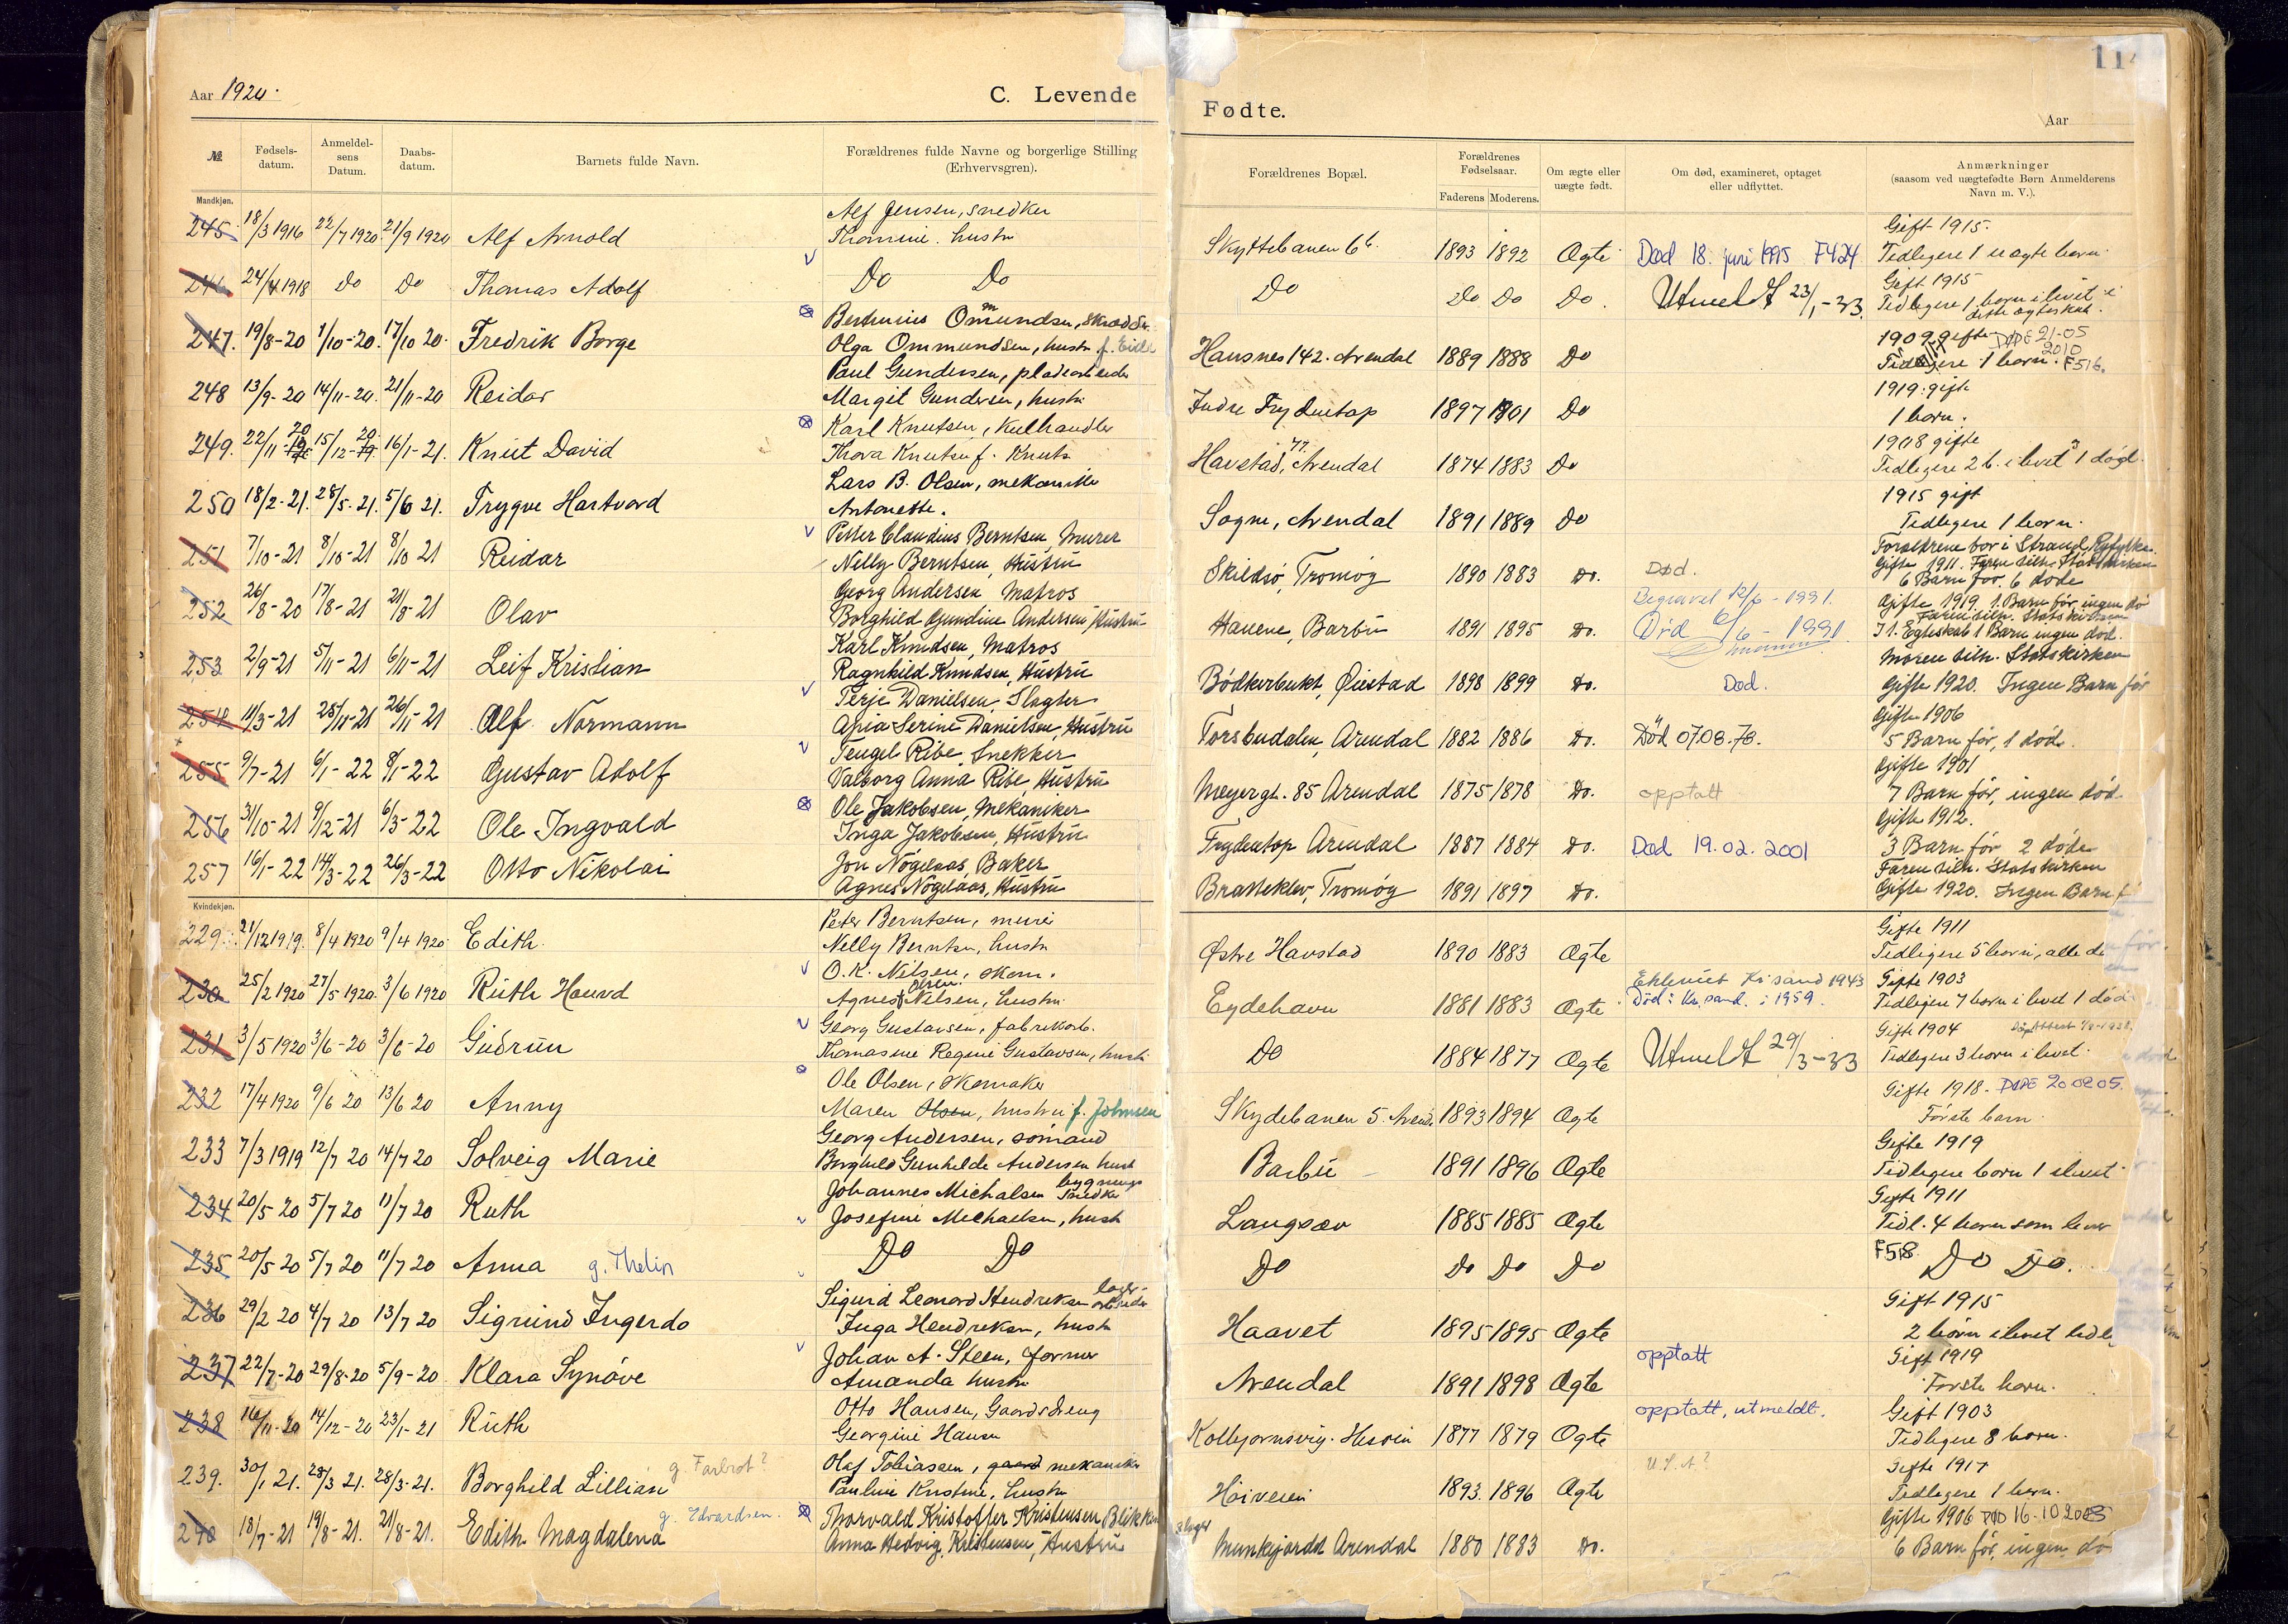 Aar 1920.
C. Levende
Fødte.
Aar
114
№
Fødsels-
datum.
Anmeldel-
sens
Datum.
Daabs-
datum.
Barnets fulde Navn.
Forældrenes fulde Navne og borgerlige Stilling
(Erhvervsgren).
Forældrenes Bopæl.
Forældrenes
Fødselsaar.
Faderens Moderens.
Om ægte eller
uægte født.
Om død, examineret, optaget
eller udflyttet.
Anmærkninger
(saasom ved uægtefødte Børn Anmelderens
Navn m. V.).
Mandkjøn.
Alf Jensen, snedker
Gift 1915.
245 18/3 1916 22/7 1920 21/9 1920 Alf Arnold Thomine hustru Skyttebanen 66. 1893 1892 Ægte Død 18. juni 1995 F424 Tidligere 1 uægte barn.
Gift 1915
246 24/4 1918 Do Do Thomas Adolf Do Do Do Do Do Do. Utmeldt 23/1-33. Tidligere 1 barn i livet i
dette ægteskab.
Berthinius Omundsen, Skrædder
1909 gifte DØDE 21-05 2010
247. 19/8-20 1/10-20. 17/10 20. Fredrik Borge Olga Ommundsen, hustr. f. Eide Hausnes 142. Arendal 1889 1888 Do Tidligere 1 barn. F516.
Paul Gundersen, pladearbeider
1919. gift
248 13/9-20 14/11-20. 21/11-20 Reidar Margit Gundersen, hustr. Indre Frydentop 1897 1901 Do 1 barn.
Karl Knutsen, Kulhandler
1908 gifte
249. 22/11-20 15/12-20 16/1-21. Knut David Thora Knutsen f. Knuts Havstad, Arendal 1874 1883 Do Tidligere 2 b. i livet 1 død.
Lars B. Olsen, mekaniker
1915 gift
250 18/2-21. 28/5-21. 5/6 21. Trygve Hartvard Antonette. Sogne, Arendal 1891 1889 Do Tidligere 1 barn.
Petter Claudius Berntsen, Murer
Forældrene bor i Strand, Ryfylke.
Gifte 1911. Faren tilh. Statskirken
251 7/10-21 8/10-21 8/10 21 Reidar Nelly Berntsen, Hustru Skildsø, Tromøy 1890 1883 Do. Død. 6 Barn før, 6 døde
Georg Andersen Matros
Begravet 12/6-1991. Gifte 1919. 1. Barn før, ingen dø
252 26/8-20 17/8-21 21/8-21 Olav Borghild Gundine Andersen, Hustru Hauene, Barbu 1891 1895 Do. Død 6/6-1991. Faren tilh. Statskirken
I 1. Egteskab 1 Barn ingen død.
Karl Knudsen, Matros
Moren tilh. Statskirken
253 2/9-21 5/11-21 6/11-21 Leif Kristian Ragnhild Knudsen, Hustru Bödkerbukt, Øiestad 1898 1899 Do. Død. Gifte 1920. Ingen Barn før
Terje Danielsen, Slagter
Gifte 1906
254 11/3-21 25/11-21 26/11-21 Alf Normann Serine Danielsen, Hustru Torsbudalen, Arendal 1882 1886 Do. Död 07.08.78. 5 Barn før, 1 død.
Tengel Ribe, Snekker
Gifte 1901
255 9/7-21 6/1-22 8/1-22 Gustav Adolf Valborg Anna Ribe, Hustru Meyergt. 85 Arendal 1875 1878 Do. opptatt 7 Barn før, ingen død
Ole Jakobsen, Mekaniker
Gifte 1912.
256 31/10-21 9/12-21 6/3-22 Ole Ingvald Inga Jakobsen, Hustru Frydentop Arendal 1887 1884 Do. Død 19.02.2001 3 Barn før 2 døde
Jon Nögelaas, Baker
Faren tilh. Statskirken
257 16/1-22 14/3-22 26/3-22 Otto Nikolai Agnes Nögelaas, Hustru Bratteklev, Tromøy 1891 1897 Do. Gifte 1920. Ingen Barn f
Kvindekjøn.
Peter Berntsen, murer
Gifte 1911
229. 21/12 1919. 8/4 1920 9/4 1920 Edith. Nelly Berntsen, hustr. Østre Havstad 1890 1883 Ægte Tidligere 5 barn, alle dø
O. K. Nilsen, skom.
Ekteviet Kr.sand 1943 Gifte 1903
230 25/2 1920 27/5 1920. 3/6 1920 Ruth Houvd Agnes Olsen Nilsen, hustru Eydehavn 1881 1883 Ægte Død: Kr. sand. i 1959. Tidligere 7 barn i livet 1 død
Georg Gustavsen, fabrikarb.
Gifte 1904
231 3/5 1920 3/6-20 3/6-20 Gudrun Thomasine Regine Gustavsen, hustr. Do 1884 1877 Ægte Utmeldt 29/3-33 Tidligere 3 barn i livet.
Ole Olsen, skomaker
Gifte 1918. DØDE 20 02 05.
232 17/4 1920 9/6 20 13/6 20 Anny Maren Olsen, hustru f. Johnsen Skydebanen 5. Arend. 1893 1894 Ægte Første barn.
Georg Andersen, sømand
Gifte 1919
233 7/3 1919 12/7 20 14/7 20 Solveig Marie Borghild Gunhilde Andersen hust Barbu 1891 1896 Ægte Tidligere barn 1 i livet.
Johannes Michalsen bygnings snedker
Gifte 1911
234 20/5 20 5/7 20 11/7 20 Ruth Josefine Michaelsen, hust Langsæv 1885 1885 Ægte Tidl. 4 barn som lever
235 20/5 20 5/7 20 11/7 20 Anna g. Thelin Do Do Do Do Do Do F518. Do Do.
Sigurd Leonard Hendriksen lager-arbeider
Gift 1915
236 29/2 20 4/7 20 13/7 20 Sigrund Ingerdo Inga Hendriksen, hust Haavet 1895 1895 Ægte 2 barn i livet tidl.
Johan A. Steen, former
opptatt Gift 1919
237 22/7-20 29/8-20 5/9-20 Klara Synøve Amanda hustr. Arendal 1891 1898 Ægte Første barn.
Otto Hansen, Gaardsdreng
opptatt, utmeldt. Gift 1903
238 16/11-20 14/12-20 23/1-21 Ruth Georgine Hansen Kolbjørnsvig. Hisøen 1877 1879 Ægte Tidligere 8 barn.
Olaf Tobiassen, gaard mekaniker
U.S.A? Gifte 1917
239. 30/1 21. 28/3 21. 28/3-21. Borghild Lillian g. Farbrot? Pauline Kristine, hustr. Höiveien 1893. 1896 Ægte Tidligere 1 barn.
Thorvald Kristoffer Kristensen Blikken
slager Gifte 1906 DØD 16.10 2003
240 18/7-21 19/8-21. 21/8-21. Edith Magdalena g. Edvardsen. Anna Hedvig Kristensen, Hustru Munkejordet Arendal 1880 1883 Do. 6 Barn før, ingen dø